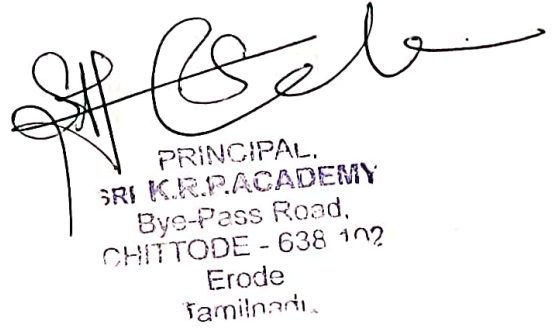 PRINCIPAL,
SRI K.R.P.ACADEMY
Bye-Pass Road,
CHITTODE - 638 102
Erode
Tamilnadu.